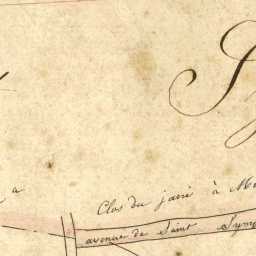 a
Clos du jarri à M
avenue de Saint Symp